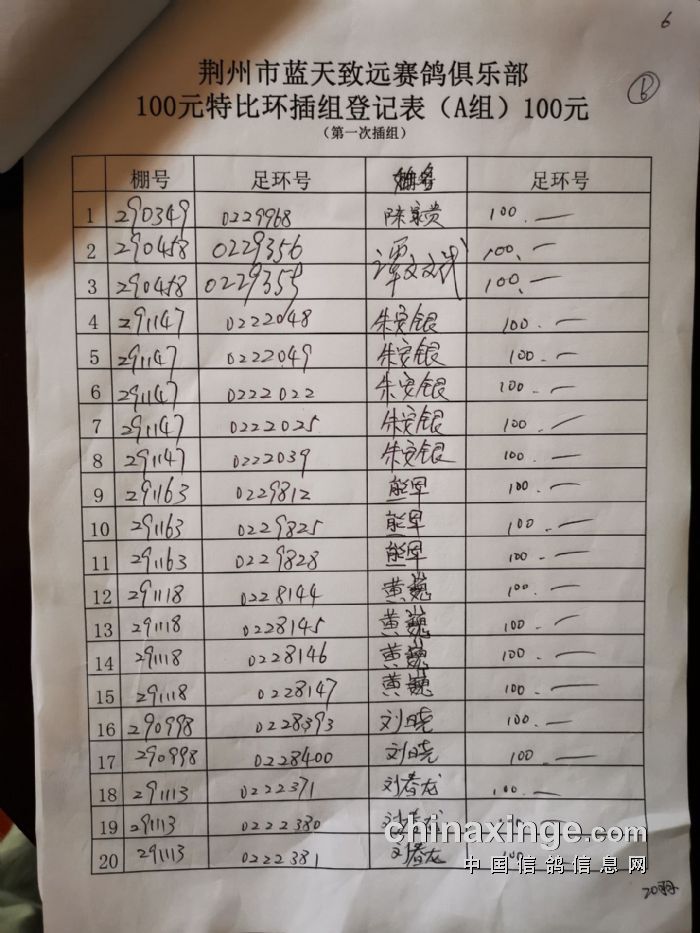 6
B
荆州市蓝天致远赛鸽俱乐部
100元特比环插组登记表（A组）100元
（第一次插组）
棚号 足环号 足环号
1 290349 0229968 陈家贵 100.—
2 290458 0229356 谭文斌 100.—
3 290458 0229355 100.—
4 291147 0222048 朱安银 100.—
5 291147 0222049 朱安银 100.—
6 291147 0222022 朱安银 100.—
7 291147 0222025 朱安银 100.—
8 291147 0222039 朱安银 100.—
9 291163 0229812 熊军 100.—
10 291163 0229825 熊军 100.—
11 291163 0229828 熊军 100.—
12 291118 0228144 黄巍 100.—
13 291118 0228145 黄巍 100.—
14 291118 0228146 黄巍 100.—
15 291118 0228147 黄巍 100.—
16 290998 0228393 刘晓 100.—
17 290998 0228400 刘晓 100.—
18 291113 0222371 刘春龙 100.—
19 291113 0222380 刘春龙 100.—
20 291113 0222381 刘春龙 100.—
chinaxinge.com
中国信鸽信息网
20羽